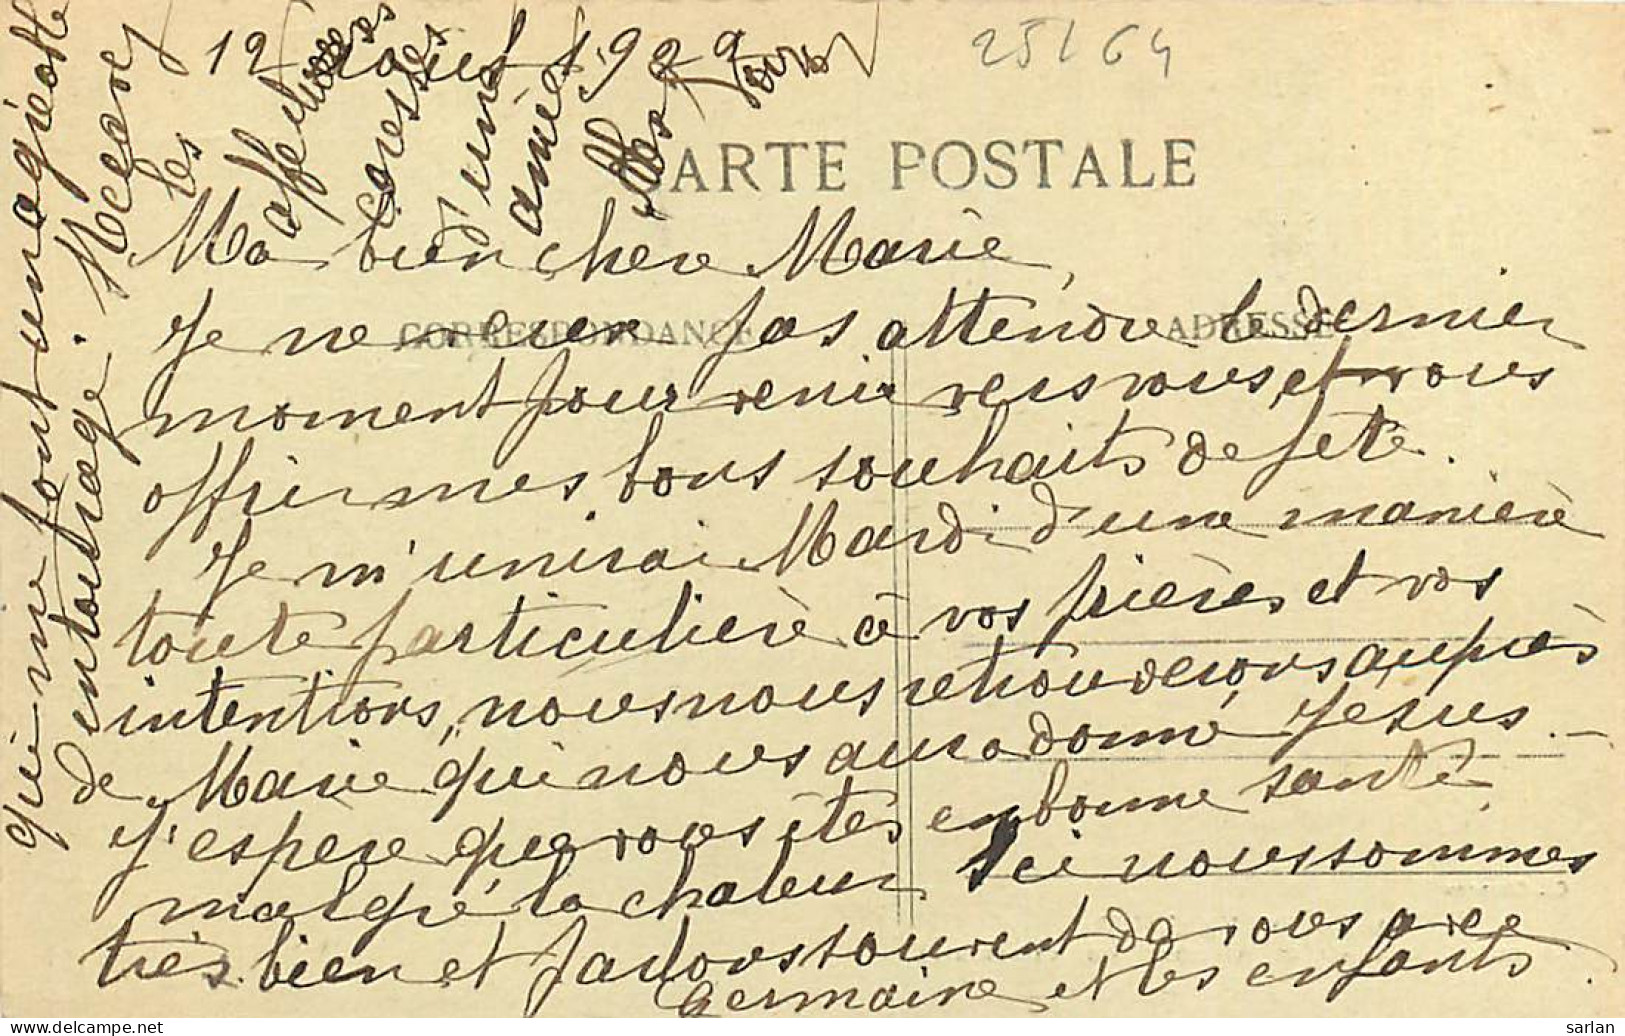 12 Août 1922
25/64
CARTE POSTALE
CORRESPONDANCE
ADRESSE
Ma bien chere Marie,
Je ne veux pas attendre le dernier
moment pour venir vers vous, et vous
offrir mes bons souhaits de fete.
Je m'unirai Mardi d'une manière
toute particulière à vos prières et vos
intentions, nous nous retrouverons auprès
de Marie qui nous aura donné Jesus.
J'espere que vous êtes en bonne santé
malgré la chaleur Ici nous sommes
très bien et parlons souvent de vous avec
Germaine et les enfants.
qui me font un agréable
entourage.
les
affectueuses
caresses
d'une
amie
sarlan